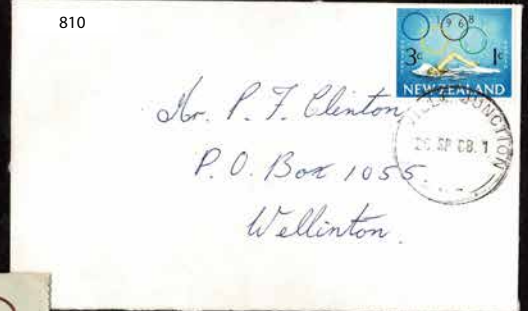 810
1968
3c 1c
NEW ZEALAND
JUNCTION
SP 68.1
Mr. P. F. Clinton,
P.O. Box 1055.
Wellinton.